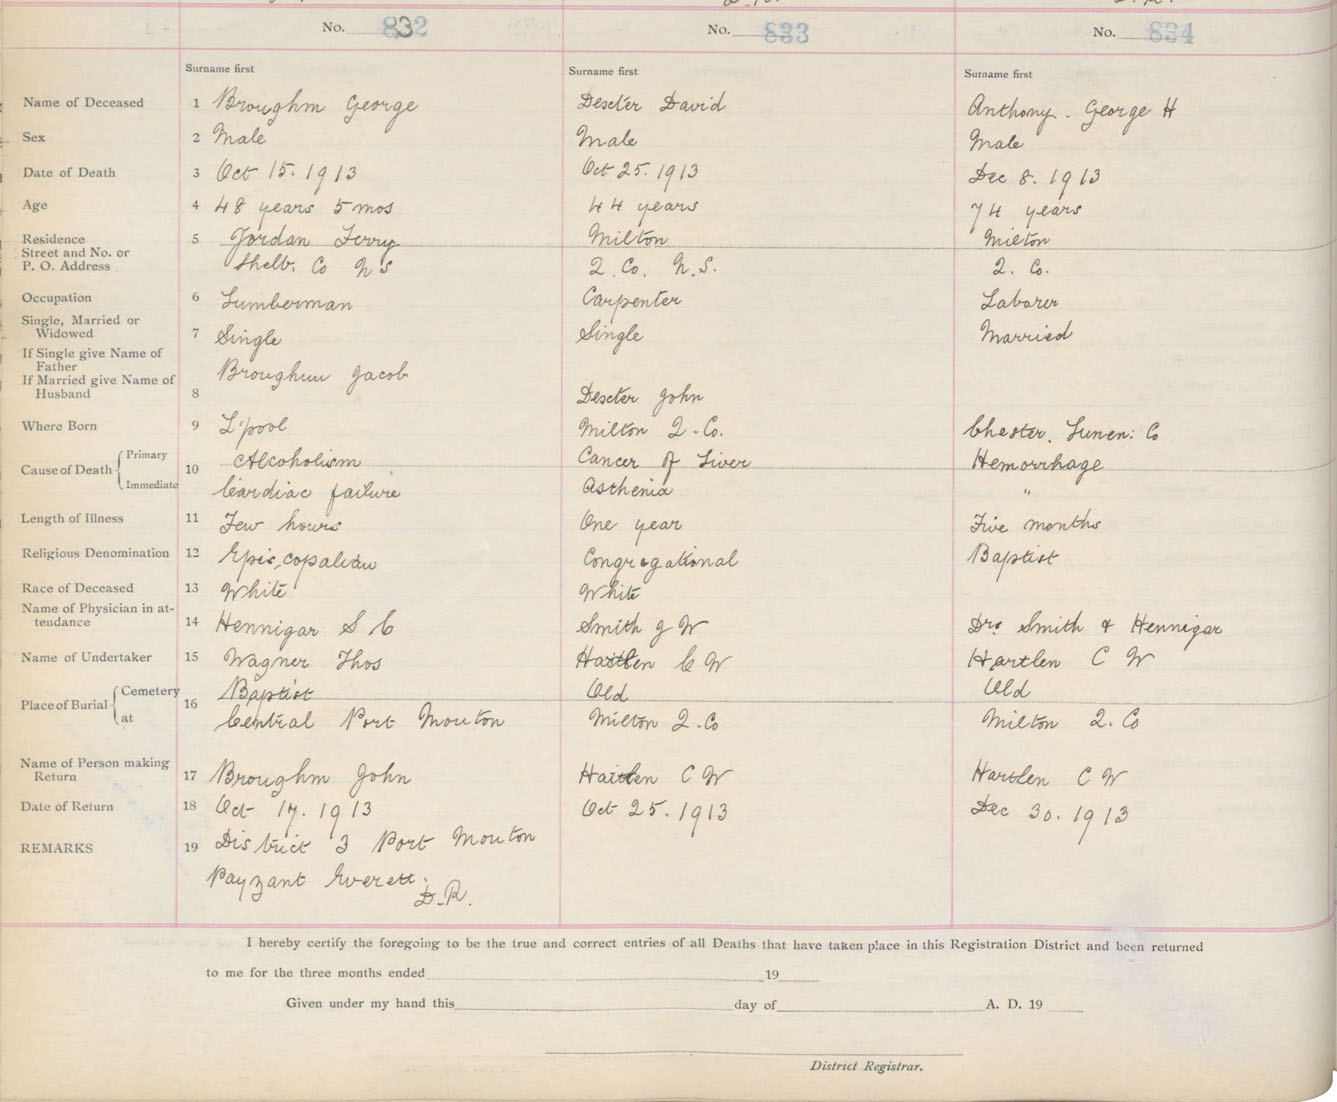 No. 832 No. 833 No. 834
Surname first Surname first Surname first
Name of Deceased 1 Broughm George Dexter David Anthony. George H
Sex 2 Male Male Male
Date of Death 3 Oct 15. 1913 Oct 25. 1913 Dec 8. 1913
Age 4 48 years 5 mos 44 years 74 years
Residence 5 Jordan Ferry Milton Milton
Street and No. or
P. O. Address Shelb. Co N S Q. Co. N.S. Q. Co.
Occupation 6 Lumberman Carpenter Laborer
Single, Married or
Widowed 7 Single Single Married
If Single give Name of
Father Broughm Jacob
If Married give Name of
Husband 8 Dexter John
Where Born 9 L'pool Milton Q. Co. Chester. Lunen: Co
Cause of Death Primary 10 Alcoholism Cancer of Liver Hemorrhage
Immediate Cardiac failure Asthenia "
Length of Illness 11 Few hours One year Five months
Religious Denomination 12 Episcopalian Congregational Baptist
Race of Deceased 13 White White
Name of Physician in at-
tendance 14 Hennigar S C Smith J W Drs Smith & Hennigar
Name of Undertaker 15 Wagner Thos Hartlen C W Hartlen C W
Place of Burial Cemetery 16 Baptist Old Old
at Central Port Mouton Milton Q. Co Milton Q. Co
Name of Person making
Return 17 Broughm John Hartlen C W Hartlen C W
Date of Return 18 Oct 17. 1913 Oct 25. 1913 Dec 30. 1913
REMARKS 19 District 3 Port Mouton
Payzant Everett.
D.R.
I hereby certify the foregoing to be the true and correct entries of all Deaths that have taken place in this Registration District and been returned
to me for the three months ended 19
Given under my hand this day of A. D. 19
District Registrar.